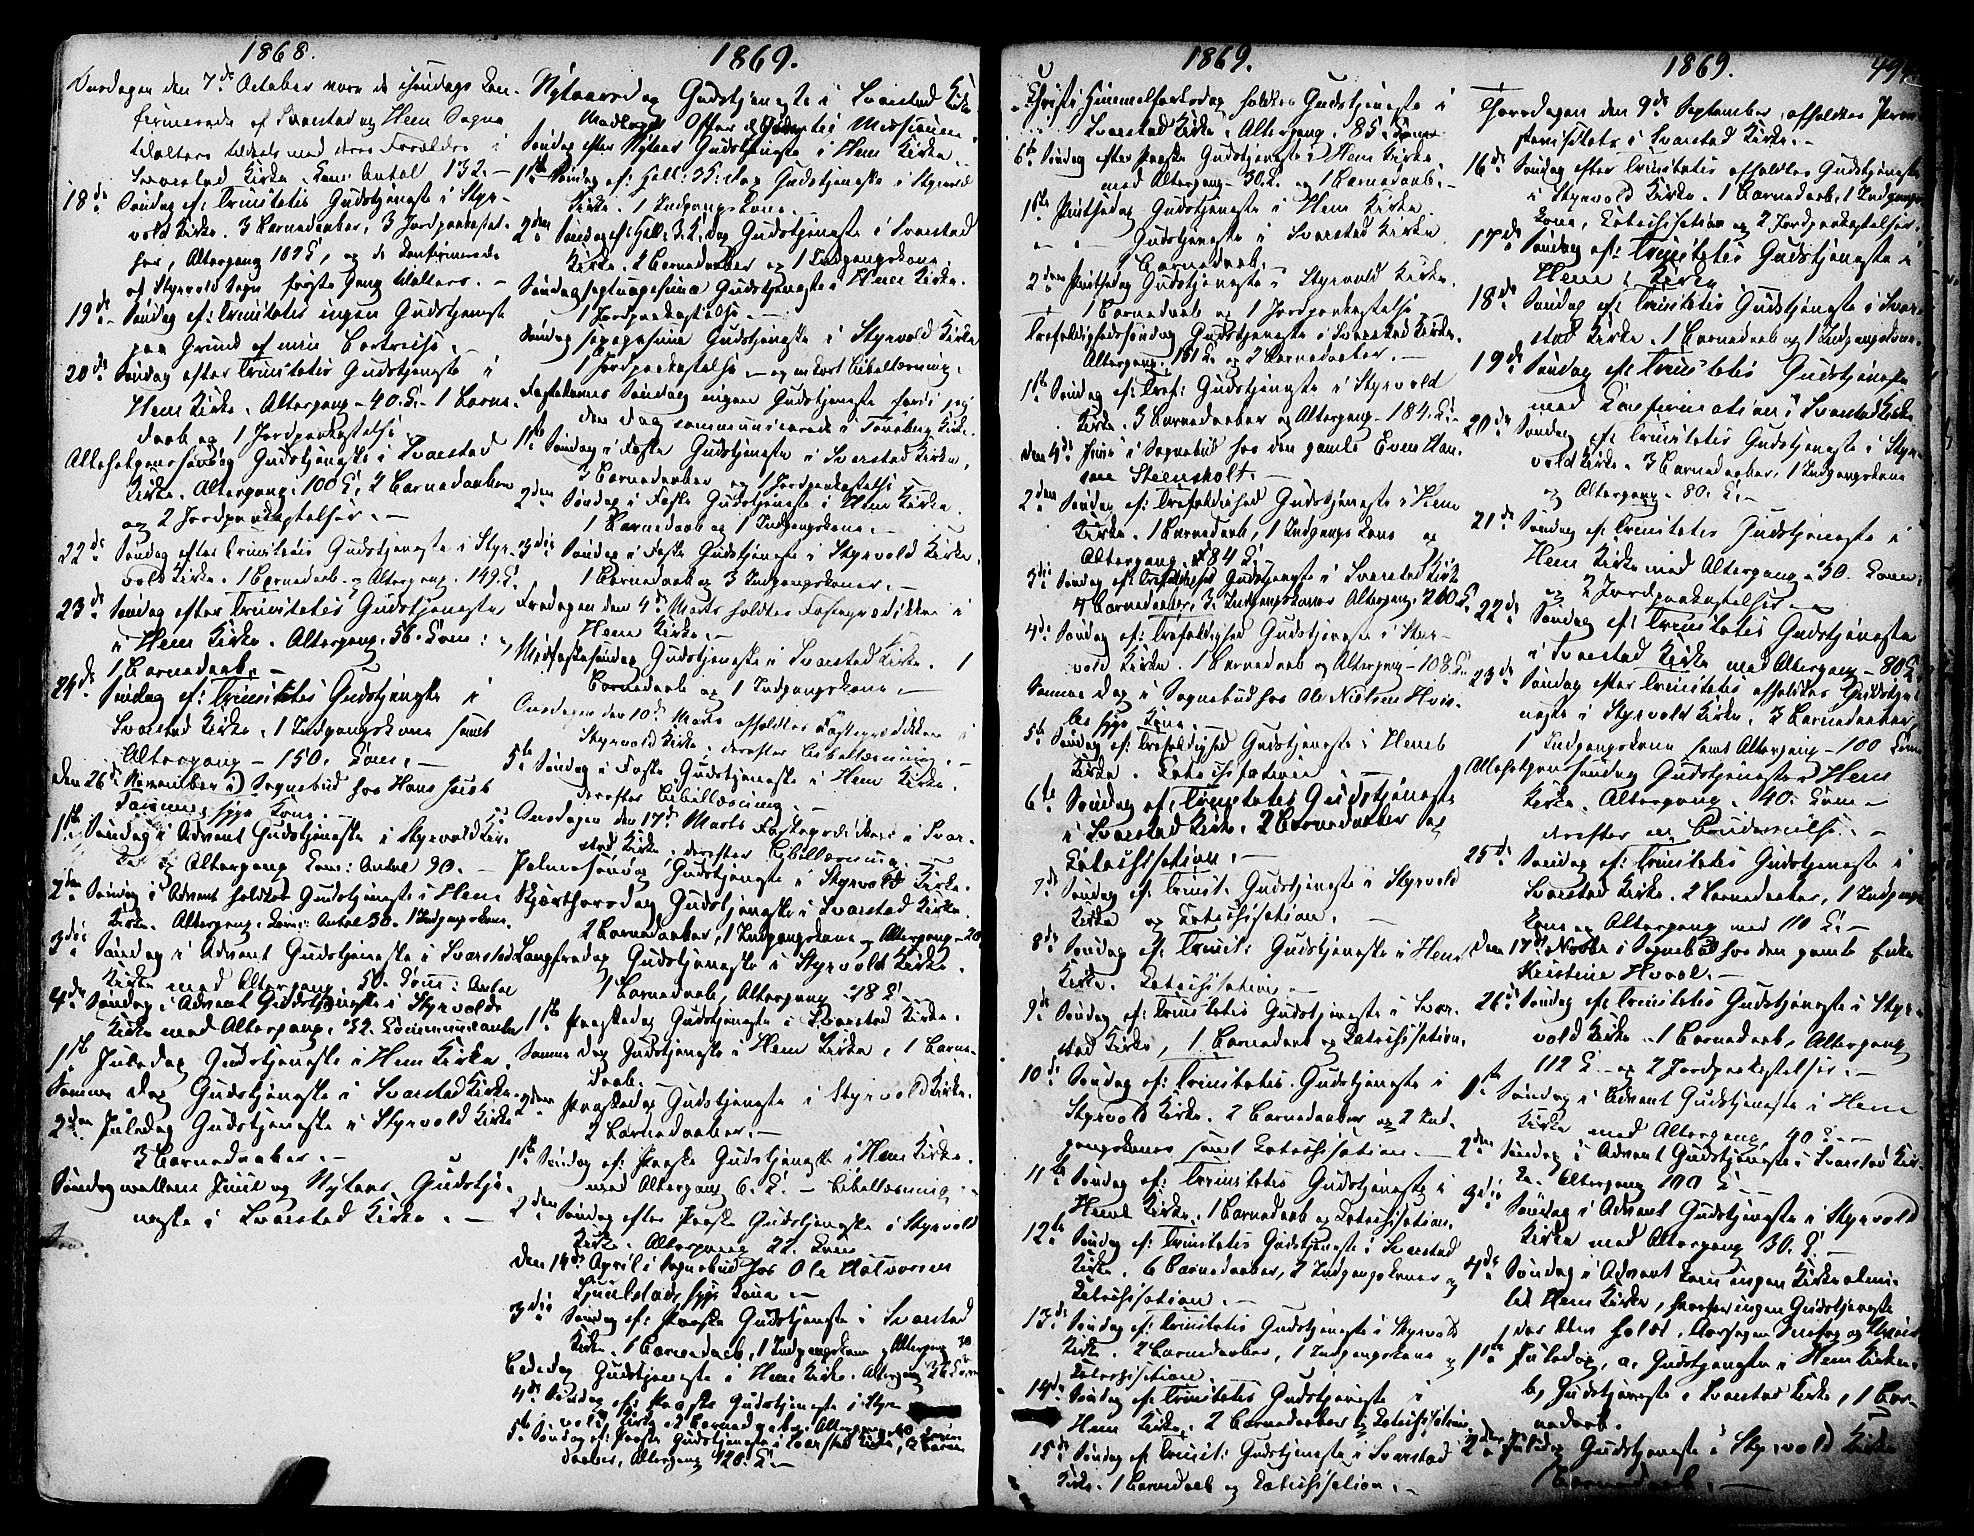 1868.
Onsdagen den 7de October vare de Søndags Con-
firmerede af Svarstad og Hem Sogne
tilalters tilligemed deres Forældre i
Svarstad Kirke. Com: Antal 132.
18de Søndag ef: Trinitatis Gudstjeneste i Styr-
vold Kirke. 3 Barnedaaber, 3 Jordpaakastel-
ser, Altergang og de Confirmerede
af Styrvold Sogn første Gang tilalters.
19de Søndag ef: Trinitatis ingen Gudstjeneste
paa Grund af min Bortreise.
20de Søndag efter Trinitatis Gudstjeneste i
Hem Kirke. Altergang - 40. C. - 1 Barne-
daab og 1 Jordpaakastelse.
Allehelgenssøndag Gudstjeneste i Svarstad
Kirke. Altergang. 100 C. 2 Barnedaaber
og 2 Jordpaakastelser.
22de Søndag efter Trinitatis Gudstjeneste i Styr-
vold Kirke. 1 Barnedaab og Altergang. 149. C.
23de Søndag efter Trinitatis Gudstjeneste
i Hem Kirke. Altergang. 56. Com:
1 Barnedaab.
24de Søndag ef: Trinitatis Gudstjeneste i
Svarstad Kirke. 1 Indgangskone samt
Altergang - 150. Com.
Den 26de November i Sognebud hos Hans Jacob
syge Kone.
1ste Søndag i Advent Gudstjeneste i Styrvold Kir-
ke og Altergang Com: Antal 90.
2den Søndag i Advent holdtes Gudstjeneste i Hem
Kirke. Altergang. Com: Antal 30. 1 Indgangskone.
3die Søndag i Advent Gudstjeneste i Svarstad
Kirke med Altergang. 50. Com: Antal
4de Søndag i Advent Gudstjeneste i Styrvold
Kirke med Altergang. 32. Communicanter
1ste Juledag Gudstjeneste i Hem Kirke
Samme Dag Gudstjeneste i Svarstad Kirke.
2den Juledag Gudstjeneste i Styrvold Kirke
3 Barnedaaber.
Søndag mellem Juul og Nytaar Gudstje-
neste i Svarstad Kirke.
1869.
Nytaarsdag Gudstjeneste i Svarstad Kirke
Modtoges Offer til Missionen.
Søndag efter Nytaar Gudstjeneste i Hem Kirke.
1ste Søndag ef: Hell: 3 K: Dag Gudstjeneste i Styrvold
Kirke. 1 Indgangskone.
2den Søndag ef: Hell: 3. K. Dag Gudstjeneste i Svarstad
Kirke. 2 Barnedaaber og 1 Indgangskone.
Søndag septuagesima Gudstjeneste i Hem Kirke.
1 Jordpaakastelse.
Søndag sexagesima Gudstjeneste i Styrvold Kirke
1 Jordpaakastelse og en kort Bibellæsning.
Fastelavns Søndag ingen Gudstjeneste fordi jeg
den Dag communicerede i Tønsberg Kirke.
1ste Søndag i Faste Gudstjeneste i Svarstad Kirke,
3 Barnedaaber og 1 Jordpaakastelse
2den Søndag i Faste Gudstjeneste i Hem Kirke.
1 Barnedaab og 1 Indgangskone.
3die Søndag i Faste Gudstjeneste i Styrvold Kirke.
1 Barnedaab og 3 Indgangskoner.
Fredagen den 4de Marts holdtes Fasteprædiken i
Hem Kirke.
Midfastesøndag Gudstjeneste i Svarstad Kirke. 1
Barnedaab og 1 Indgangskone.
Onsdagen den 10de Marts afholdtes Fasteprædiken i
Styrvold Kirke; derefter Bibellæsning.
5te Søndag i Faste Gudstjeneste i Hem Kirke.
derefter Bibellæsning.
Onsdagen den 17de Marts Fasteprædiken i Svar-
stad Kirke, derefter Bibellæsning.
Palmesøndag Gudstjeneste i Styrvold Kirke.
Skjærthorsdag Gudstjeneste i Svarstad Kirke.
2 Barnedaaber, 1 Indgangskone og Altergang - 20
Langfredag Gudstjeneste i Styrvold Kirke.
1 Barnedaab, Altergang - 18 C.
1ste Paaskedag Gudstjeneste i Svarstad Kirke.
Samme Dag Gudstjeneste i Hem Kirke, 1 Barne-
daab.
2den Paaskedag Gudstjeneste i Styrvold Kirke.
2 Barnedaaber.
1ste Søndag ef: Paaske Gudstjeneste i Hem Kirke.
med Altergang 6. C. - Bibellæsning
2den Søndag efter Paaske Gudstjeneste i Styrvold
Kirke. Altergang 22. Com
Den 14de April i Sognebud hos Ole Halvorsen
syge Kone
3die Søndag ef: Paaske Gudstjeneste i Svarstad
Kirke. 1 Barnedaab, 1 Indgangskone, Altergang 30
Bededag Gudstjeneste i Hem Kirke. Altergang
4de Søndag ef: Paaske Gudstjeneste i Styr-
vold Kirke
5te Søndag ef: Paaske Gudstjeneste i Svarstad Kirke, 2 Barne-
daaber, Altergang 120. C.
1869.
Christi Himmelfartsdag holdtes Gudstjeneste i
Svarstad Kirke. Altergang. 85. Com
6te Søndag efter Paaske Gudstjeneste i Hem Kirke.
med Altergang - 30. C. og 1 Barnedaab.
1ste Pintsedag Gudstjeneste i Hem Kirke.
Gudstjeneste i Svarstad Kirke
1 Barnedaab.
2den Pintsedag Gudstjeneste i Styrvold Kirke.
1 Barnedaab og 1 Jordpaakastelse
Trefoldighedssøndag Gudstjeneste i Svarstad Kirke.
Altergang. 151 C. og 2 Barnedaaber.
1ste Søndag ef: Tref: Gudstjeneste i Styrvold
Kirke. 3 Barnedaaber og Altergang - 184. C.
den 4de Juni i Sognebud hos den gamle Even Han-
sen Steensholt.
2den Søndag ef: Trefoldighed Gudstjeneste i Hem
Kirke. 1 Barnedaab, 1 Indgangskone og
Altergang - 84 C.
3die Søndag ef: Trefoldighed Gudstjeneste i Svarstad Kirke
4 Barnedaaber, 3 Indgangskoner Altergang. 260 C.
4de Søndag ef: Trefoldighed Gudstjeneste i Styr-
vold Kirke. 1 Barnedaab og Altergang - 108 C.
Samme Dag i Sognebud hos Ole Nielsen
syge Kone.
5te Søndag ef: Trefoldighed Gudstjeneste i Hem
Kirke. Catechisation.
6te Søndag ef: Trinitatis Gudstjeneste
i Svarstad Kirke. 2 Barnedaaber og
Catechisation.
7de Søndag ef: Trinit. Gudstjeneste i Styrvold
Kirke og Catechisation.
8de Søndag ef: Trinit: Gudstjeneste i Hem
Kirke. Catechisation.
9de Søndag ef: Trinitatis Gudstjeneste i Svar-
stad Kirke, 1 Barnedaab og Catechisation.
10de Søndag ef: Trinitatis. Gudstjeneste i
Styrvold Kirke. 2 Barnedaaber og 2 Ind-
gangskoner samt Catechisation.
11te Søndag ef: Trinitatis Gudstjeneste i
Hem Kirke. 1 Barnedaab og Catechisation.
12te Søndag ef: Trinitatis Gudstjeneste i Svarstad
Kirke. 6 Barnedaaber, 2 Indgangskoner og
Catechisation.
13de Søndag ef: Trinitatis Gudstjeneste i Styrvold
Kirke. 2 Barnedaaber, 1 Indgangskone og
Catechisation.
14de Søndag ef: Trinitatis Gudstjeneste i
Hem Kirke. 2 Barnedaaber og Catechisation
15de Søndag ef: Trinit: Gudstjeneste i Svarstad
Kirke. 1 Barnedaab og Catechisation.
1869.
Thorsdagen den 9de September afholdtes
i Svarstad Kirke.
16de Søndag efter Trinitatis afholdtes Gudstjeneste
i Styrvold Kirke. 1 Barnedaab, 1 Indgangs-
kone, Catechisation og 2 Jordpaakastelser.
17de Søndag ef: Trinitatis Gudstjeneste i
Hem Kirke
18de Søndag ef: Trinitatis Gudstjeneste i Svar-
stad Kirke. 1 Barnedaab og 1 Indgangskone.
19de Søndag ef: Trinitatis Gudstjeneste
med Confirmation i Svarstad Kirke
20de Søndag ef: Trinitatis Gudstjeneste i Styr-
vold Kirke. 3 Barnedaaber, 1 Indgangskone
og Altergang - 80. C.
21de Søndag ef: Trinitatis Gudstjeneste i
Hem Kirke med Altergang - 30. Com:
og 2 Jordpaakastelser.
22de Søndag ef: Trinitatis Gudstjeneste
i Svarstad Kirke med Altergang - 80 C.
23de Søndag efter Trinitatis afholdtes Gudstje-
neste i Styrvold Kirke. 3 Barnedaaber,
1 Indgangskone samt Altergang - 100 Com
Allehelgenssøndag Gudstjeneste i Hem
Kirke. Altergang. 40. Com
derefter en Brudevielse.
25de Søndag ef: Trinitatis Gudstjeneste i
Svarstad Kirke. 2 Barnedaaber, 1 Indgangs-
kone og Altergang med 110 C.
Den 17de Novbr i Sognebud hos den gamle Enke
Kristine Hvaal.
26de Søndag ef: Trinitatis Gudstjeneste i Styr-
vold Kirke. 1 Barnedaab, Altergang
112 C. og 2 Jordpaakastelser.
1ste Søndag i Advent Gudstjeneste i Hem
Kirke med Altergang, 40 C.
2den Søndag i Advent Gudstjeneste i Svarstad Kir-
ke. Altergang 100 C
3die Søndag i Advent Gudstjeneste i Styrvold
Kirke med Altergang 30. C.
4de Søndag i Advent kom ingen Kirkealmue
til Hem Kirke, hvorfor ingen Gudstjeneste
der blev holdt, Aarsagen Snefog og
1ste Juledag, a, Gudstjeneste i Hem Kirke.
b, Gudstjeneste i Svarstad Kirke, 1 Bar-
nedaab.
2den Juledag Gudstjeneste i Styrvold Kirke
1 Barnedaab.